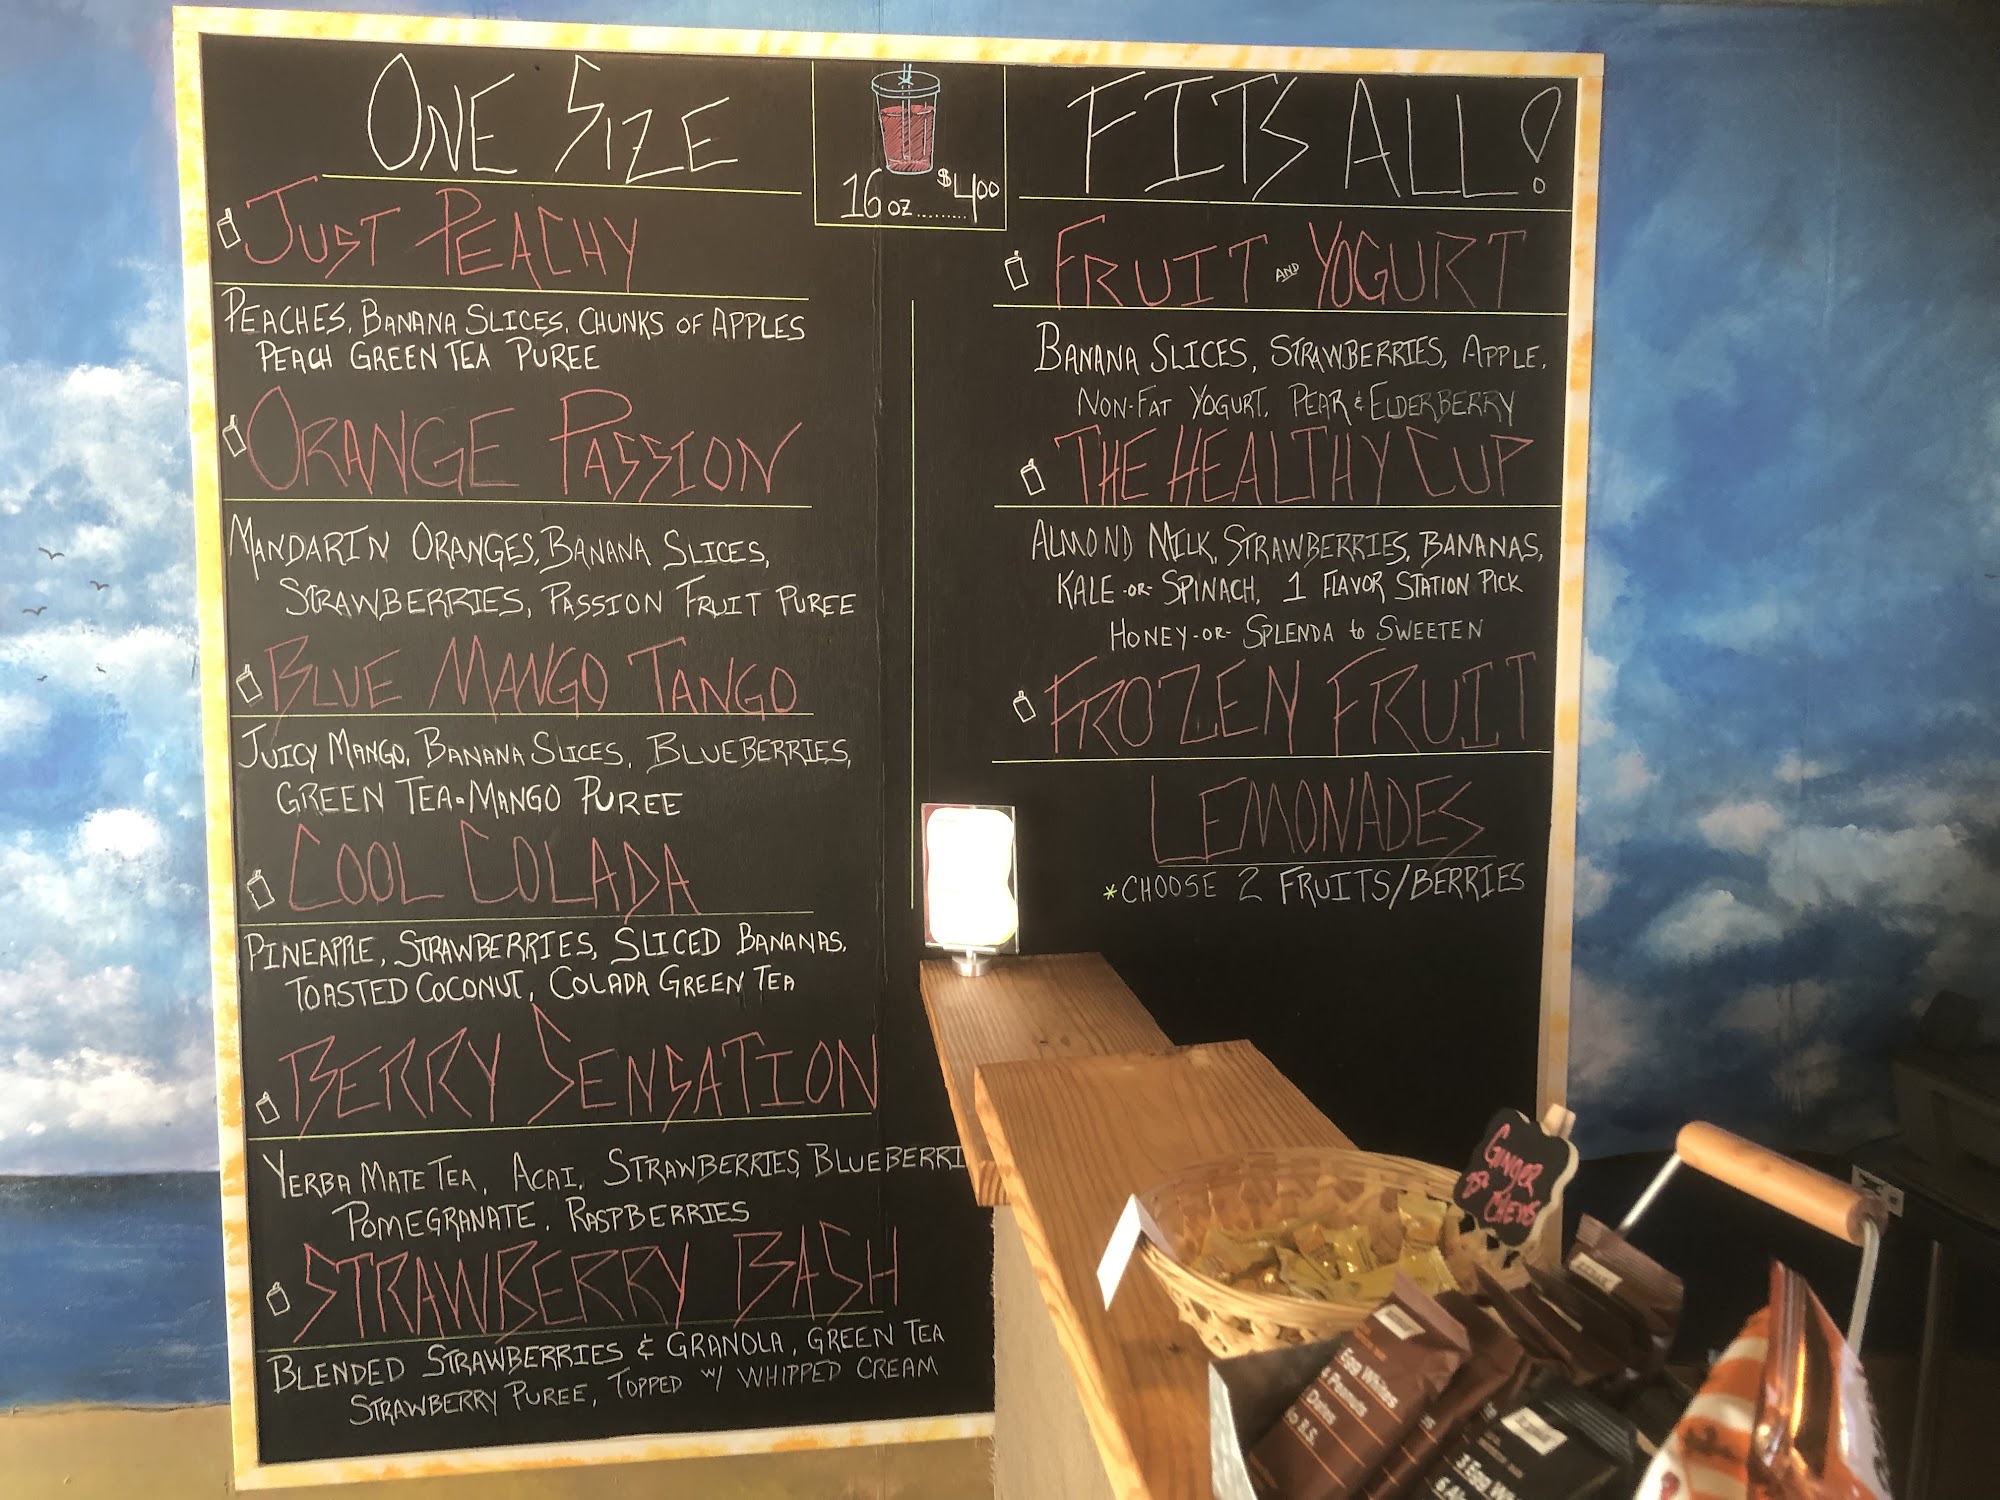 ONE SIZE
16 oz......... $4.00
FITS ALL!
JUST PEACHY
PEACHES, BANANA SLICES, CHUNKS OF APPLES
PEACH GREEN TEA PUREE
ORANGE PASSION
MANDARIN ORANGES, BANANA SLICES,
STRAWBERRIES, PASSION FRUIT PUREE
BLUE MANGO TANGO
JUICY MANGO, BANANA SLICES, BLUEBERRIES,
GREEN TEA-MANGO PUREE
COOL COLADA
PINEAPPLE, STRAWBERRIES, SLICED BANANAS,
TOASTED COCONUT, COLADA GREEN TEA
BERRY SENSATION
YERBA MATE TEA, ACAI, STRAWBERRIES, BLUEBERRI
POMEGRANATE, RASPBERRIES
STRAWBERRY BASH
BLENDED STRAWBERRIES & GRANOLA, GREEN TEA
STRAWBERRY PUREE, TOPPED w/ WHIPPED CREAM
FRUIT AND YOGURT
BANANA SLICES, STRAWBERRIES, APPLE,
NON-FAT YOGURT, PEAR & ELDERBERRY
THE HEALTHY CUP
ALMOND MILK, STRAWBERRIES, BANANAS,
KALE -OR- SPINACH, 1 FLAVOR STATION PICK
HONEY -OR- SPLENDA to SWEETEN
FROZEN FRUIT
LEMONADES
*CHOOSE 2 FRUITS/BERRIES
GINGER
CHEWS
Egg Whites
Peanuts
Dates
No B.S.
3 Egg Wh